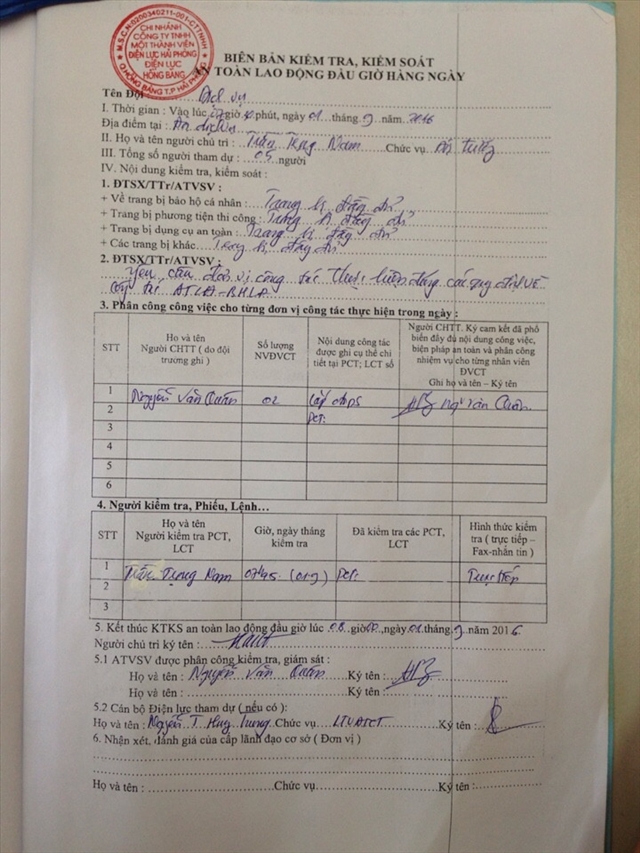 M.S.C.N:0200340211-001-C.T.TNHH
CHI NHÁNH
CÔNG TY TNHH
MỘT THÀNH VIÊN
ĐIỆN LỰC HẢI PHÒNG
ĐIỆN LỰC
HỒNG BÀNG
Q.HỒNG BÀNG T.P HẢI PHÒNG
BIÊN BẢN KIỂM TRA, KIỂM SOÁT
AN TOÀN LAO ĐỘNG ĐẦU GIỜ HÀNG NGÀY
Tên Đội Dịch vụ
I. Thời gian : Vào lúc 07 giờ phút, ngày 01 tháng 9 năm 2016
Địa điểm tại :
II. Họ và tên người chủ trì : Trần Trọng Nam Chức vụ Đội trưởng
III. Tổng số người tham dự : 05 người
IV. Nội dung kiểm tra, kiểm soát :
1. ĐTSX/TTr/ATVSV :
+ Về trang bị bảo hộ cá nhân : Trang bị đầy đủ
+ Trang bị phương tiện thi công : Trang bị đầy đủ
+ Trang bị dụng cụ an toàn : Trang bị đầy đủ
+ Các trang bị khác Trang bị đầy đủ
2. ĐTSX/TTr/ATVSV :
Yêu cầu đơn vị công tác thực hiện đúng các quy định về
ATLĐ-BHLĐ
3. Phân công công việc cho từng đơn vị công tác thực hiện trong ngày :
STT
Họ và tên
Người CHTT ( do đội
trưởng ghi )
Số lượng
NVĐVCT
Nội dung công tác
được ghi cụ thể chi
tiết tại PCT; LCT số
Người CHTT. Ký cam kết đã phổ
biến đầy đủ nội dung công việc,
biện pháp an toàn và phân công
nhiệm vụ cho từng nhân viên
ĐVCT
Ghi họ và tên – Ký tên
1 Nguyễn Văn Quân 02 Lắp Quân
2 PCT:
3
4
5
6
4. Người kiểm tra, Phiếu, Lệnh…
STT
Họ và tên
Người kiểm tra PCT,
LCT
Giờ, ngày tháng
kiểm tra
Đã kiểm tra các PCT,
LCT
Hình thức kiểm
tra ( trực tiếp –
Fax-nhắn tin )
1 Trần Trọng Nam 07h45 (01/9) PCT: Trực tiếp
2
3
5. Kết thúc KTKS an toàn lao động đầu giờ lúc 08 giờ 00, ngày 01 tháng 9 năm 2016
Người chủ trì ký tên :
5.1 ATVSV được phân công kiểm tra, giám sát :
Họ và tên : Nguyễn Văn Quân Ký tên :
Họ và tên : Ký tên :
5.2 Cán bộ Điện lực tham dự ( nếu có ):
Họ và tên : Nguyễn T. Huy Chức vụ Ký tên :
6. Nhận xét, đánh giá của cấp lãnh đạo cơ sở ( Đơn vị )
Họ và tên : Chức vụ Ký tên :